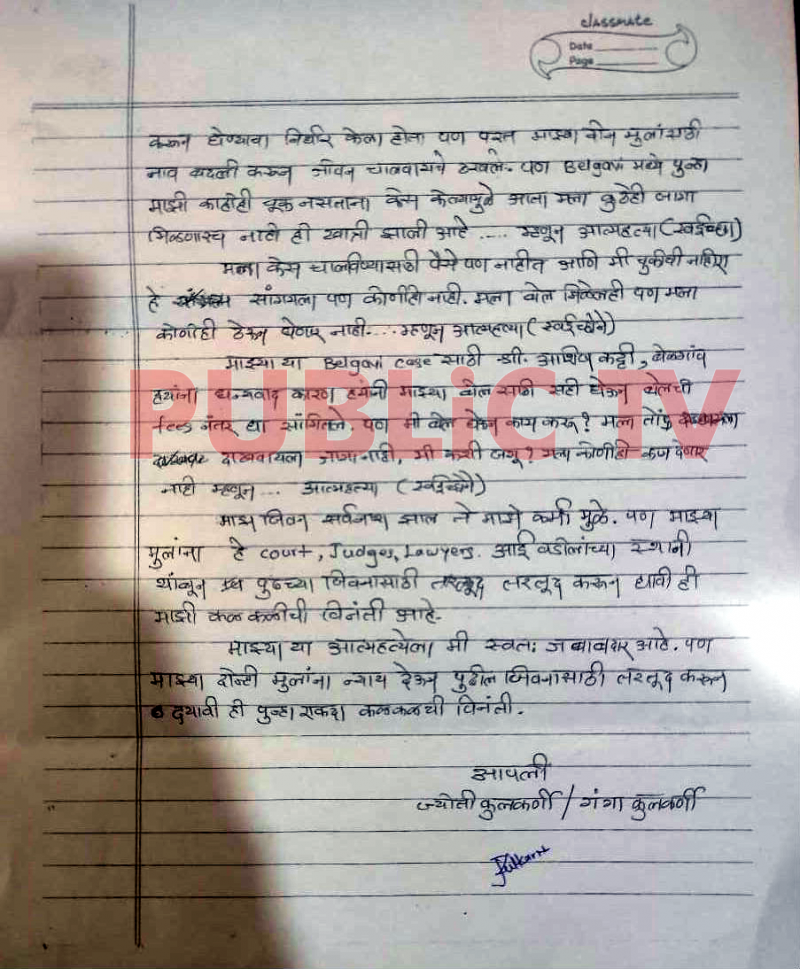 classmate
Date
Page
करून घेण्याचा निर्धार केला होता पण परत माझ्या दोन मुलांसाठी
नाव बदली करून जीवन चालवायचे ठरवले. पण Belgavi मध्ये पुन्हा
माझी काहीही चूक नसताना केस केल्यामुळे आता मला कुठेही जागा
मिळणारच नाही ही खात्री झाली आहे ..... म्हणून आत्महत्या (स्वईच्छा)
मला केस चालविण्यासाठी पैसे पण नाहीत आणि मी चुकीची नाहिए
हे सांगायला पण कोणीही नाही. मला बेल मिळेलही पण मला
कोणीही ठेऊन घेणार नाही.... म्हणून आत्महत्या (स्वईच्छेने)
माझ्या या Belgavi case साठी श्री. आशिष कट्टी, बेळगांव
हयांना धन्यवाद कारण हयांनी माझ्या बेल साठी सही घेऊन बेलची
fees नंतर द्या सांगितले. पण मी बेल घेऊन काय करू? मला तोंड
दाखवायला जागा नाही, मी कशी जगू? मला कोणीही काम देणार
नाही म्हणून ... आत्महत्या (स्वईच्छेने)
माझ जिवन सर्वनाश झाल ते माझे कर्मा मुळे. पण माझ्या
मुलांना हे court, Judges, Lawyers. आई वडीलांच्या स्थानी
थांबून पुढच्या जिवनासाठी तरतूद करून द्यावी ही
माझी कळकळीची विनंती आहे.
माझ्या या आत्महत्येला मी स्वतः जबाबदार आहे. पण
माझ्या दोन्ही मुलांना न्याय देऊन पुढील जिवनासाठी तरतूद करून
दयावी ही पुन्हा एकदा कळकळची विनंती.
आपली
ज्योती कुलकर्णी / गंगा कुलकर्णी
PUBLiC TV